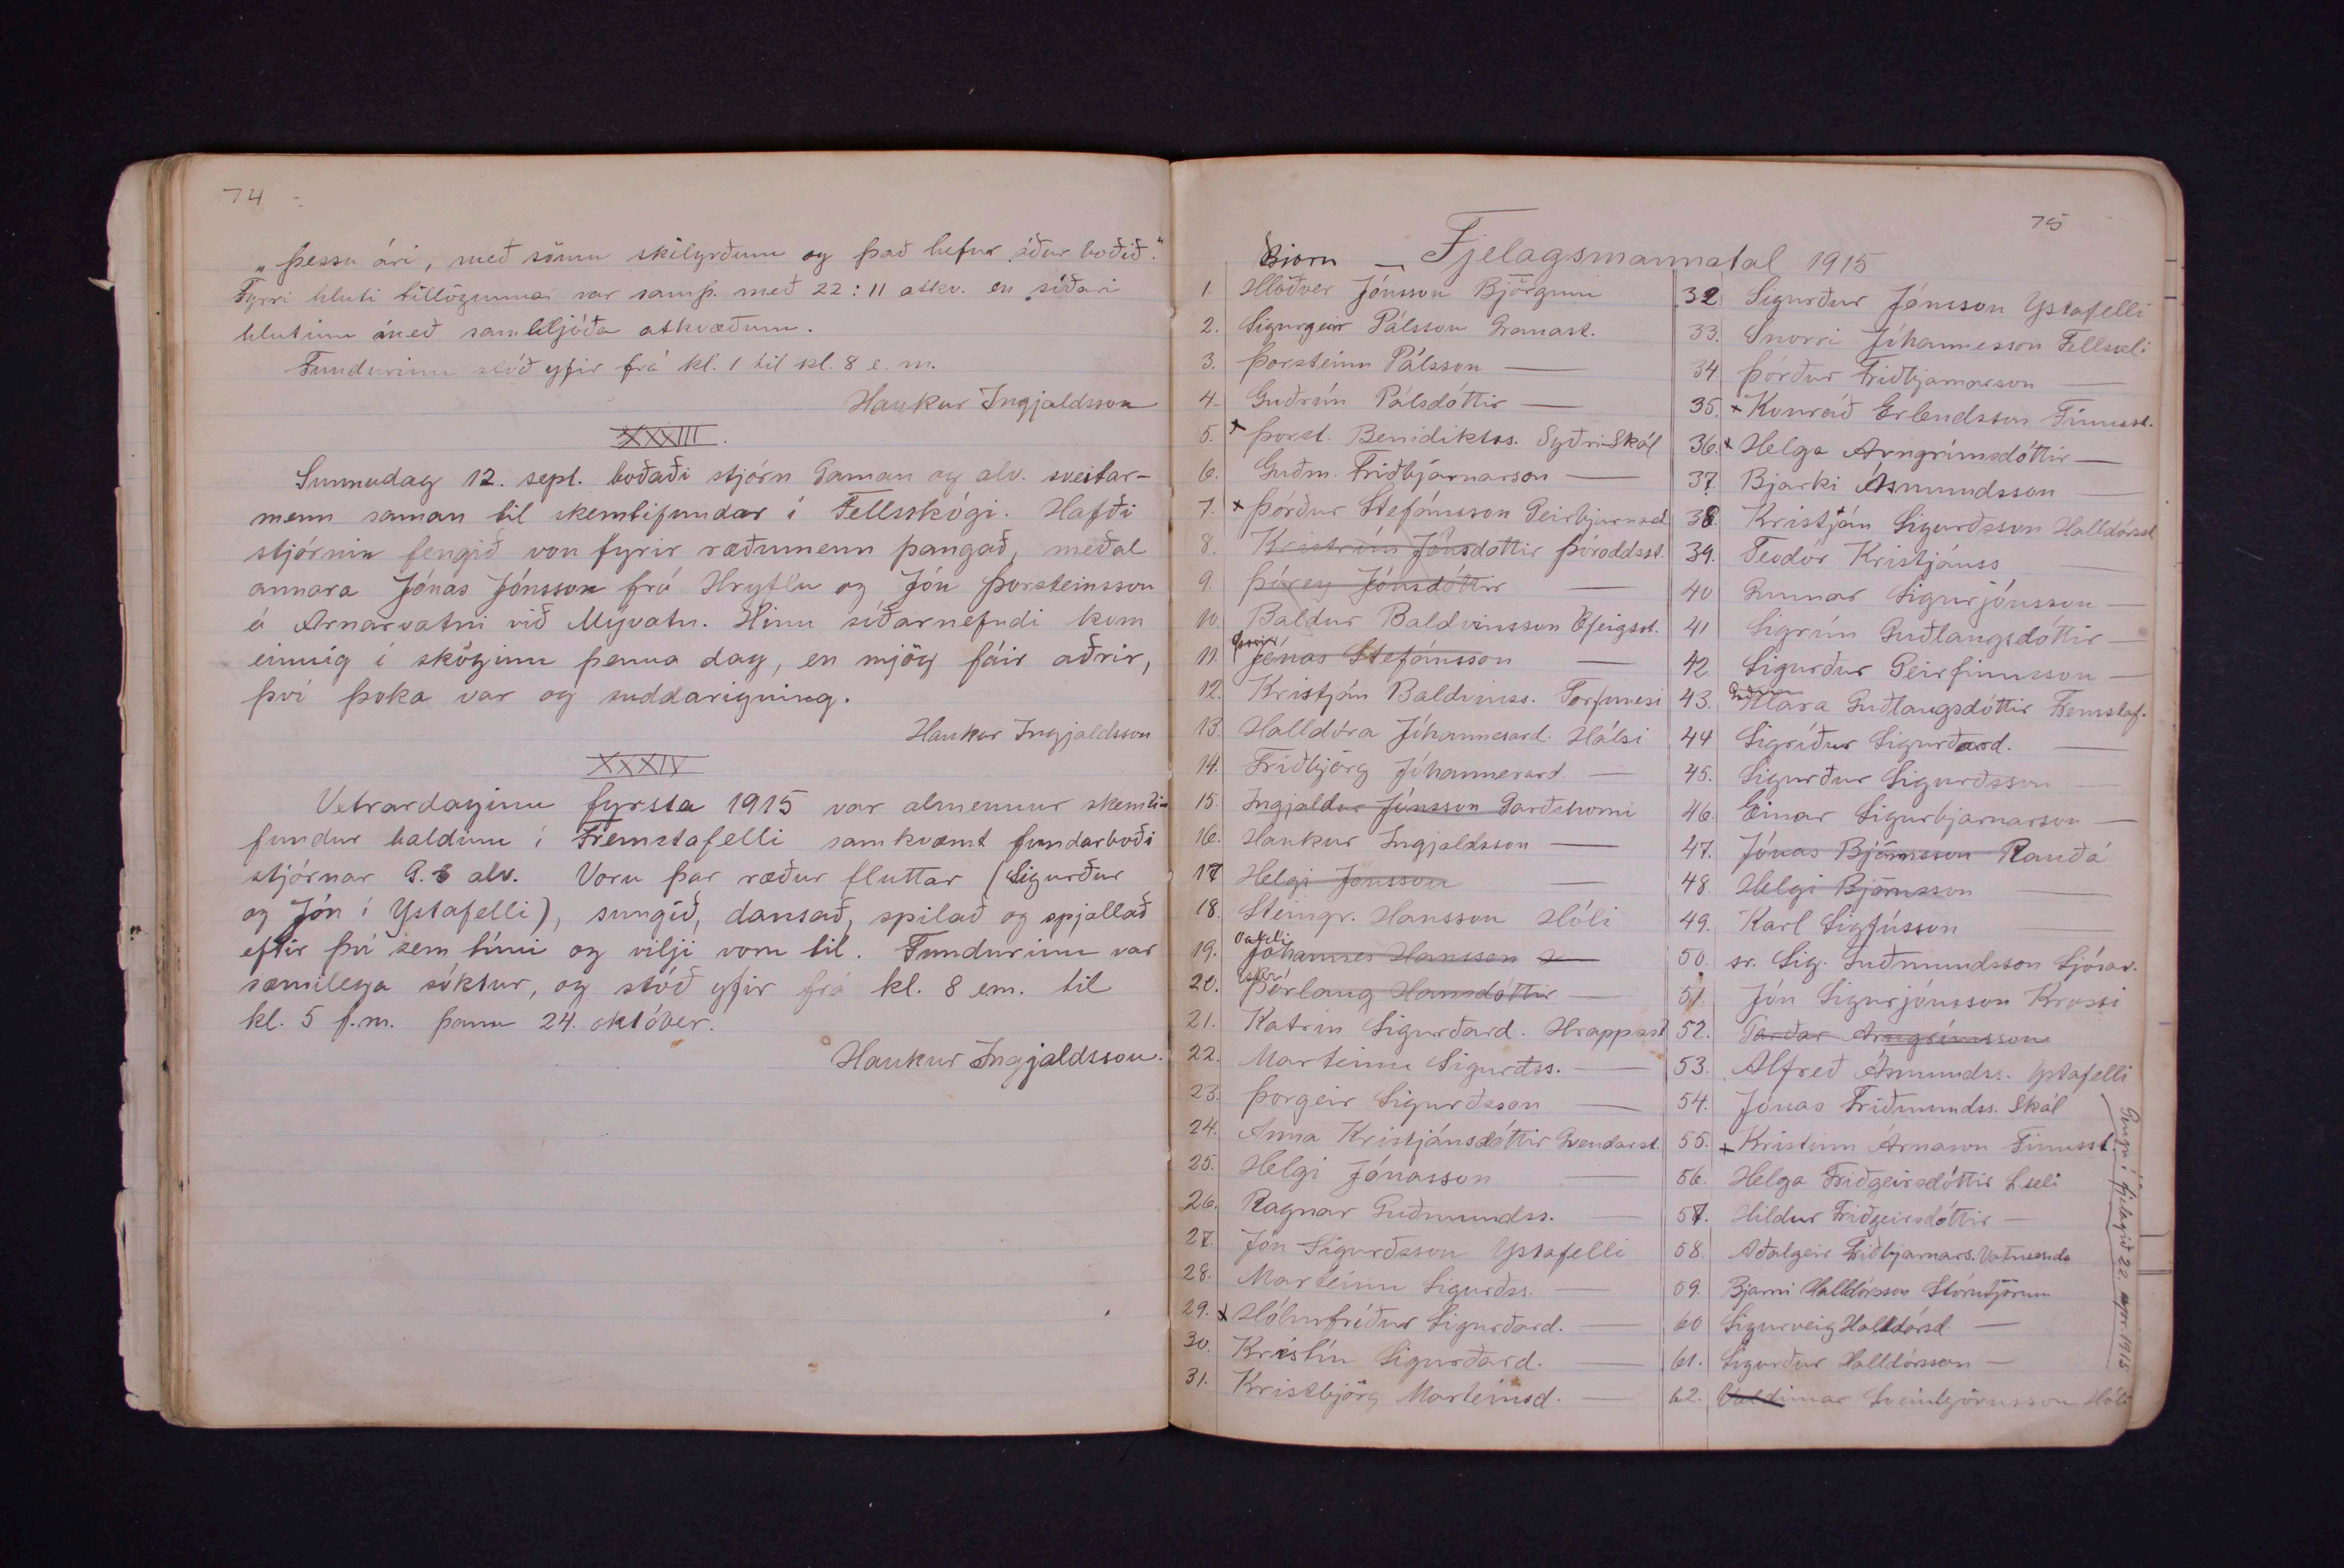 74
„þessu ári, með sömu skilyrðum og það hefur áður boðið."
Fyrri hluti tillögunnar var samþ. með 22:11 atkv. en síðari
hlutinn með samhljóða atkvæðum.
Fundurinn stóð yfir frá kl. 1 til kl. 8 e. m.
Haukur Ingjaldsson
XXXIII.
Sunnudag 12. sept. boðaði stjórn Gaman og alv. sveitar-
menn saman til skemtifundar í Fellsskógi. Hafði
stjórnin fengið von fyrir ræðumenn þangað, meðal
annara Jónas Jónsson frá Hryflu og Jón Þorsteinsson
á Arnarvatni við Mývatn. Hinn síðarnefndi kom
einnig í skóginn þenna dag, en mjög fáir aðrir,
því þoka var og suddarigning.
Haukur Ingjaldsson
XXXIV
Vetrardaginn fyrsta 1915 var almennur skemti-
fundur haldinn í Fremstafelli samkvæmt fundarboði
stjórnar G. & alv. Voru þar ræður fluttar (Sigurður
og Jón í Ystafelli), sungið, dansað, spilað og spjallað
eftir því sem tími og vilji voru til. Fundurinn var
sæmilega sóktur, og stóð yfir frá kl. 8 em. til
kl. 5 f.m. þann 24. október.
Haukur Ingjaldsson.
75
Björn — Fjelagsmannatal 1915
1. Hlöðver Jónsson Björgum
2. Sigurgeir Pálsson Granast.
3. Þorsteinn Pálsson —
4. Guðrún Pálsdóttir —
5. x Þorst. Benidiktss. Syðri-Skál
6. Guðm. Friðbjarnarson —
7. x Þórður Stefánsson Geirbjarnast
8. Kristrún Jónsdóttir Þóroddsst.
9. Þórey Jónsdóttir —
10. Baldur Baldvinsson Ófeigsst.
11. Jónas Stefánsson —
12. Kristján Baldvinss. Torfunesi
13. Halldóra Jóhannesard. Hálsi
14. Friðbjörg Jóhannesard. —
15. Ingjaldur Jónsson Garðshorni
16. Haukur Ingjaldsson —
17 Helgi Jónsson —
18. Steingr. Hansson Hóli
19. Jóhannes Hansson —
20. Þórlaug Hansdóttir —
21. Katrín Sigurðard. Hrappsst
22. Marteinn Sigurðss. —
23. Þorgeir Sigurðsson —
24. Anna Kristjánsdóttir Gvendarst.
25. Helgi Jónasson —
26. Ragnar Guðmundss. —
27. Jón Sigurðsson Ystafelli
28. Marteinn Sigurðss. —
29. x Hólmfríður Sigurðard. —
30. Kristín Sigurðard. —
31. Kristbjörg Marteinsd. —
32 Sigurður Jónsson Ystafelli
33. Snorri Jóhannesson Fellsseli
34 Þórður Friðbjarnarson —
35. x Konráð Erlendsson Finnsst.
36. x Helga Arngrímsdóttir —
37. Bjarki Ásmundsson —
38. Kristján Sigurðsson Halldórsst
39. Teodór Kristjánss —
40 Gunnar Sigurjónsson —
41 Sigrún Guðlaugsdóttir —
42 Sigurður Geirfinnsson —
43. Klara Guðlaugsdóttir Fremstaf.
44 Sigríður Sigurðard. —
45. Sigurður Sigurðsson —
46. Einar Sigurbjarnarson —
47. Jónas Björnsson Rauðá
48. Helgi Björnsson —
49. Karl Sigfússon —
50. sr. Sig. Guðmundsson Ljósav.
51 Jón Sigurjónsson Krossi
52. Garðar Arngrímsson
53. Alfreð Ásmundss. Ystafelli
54. Jónas Friðmundss. Skál
55. x Kristinn Árnason Finnsst.
56. Helga Friðgeirsdóttir L.seli
57. Hildur Friðgeirsdóttir —
58. Aðalgeir Friðbjarnars. Vatnsenda
59. Bjarni Halldórsson Stórutjörnum
60 Sigurveig Halldórsd —
61. Sigurður Halldórsson —
62. Valdimar Sveinbjörnsson Hóli
Gengu í fjelagið 22. apr. 1915